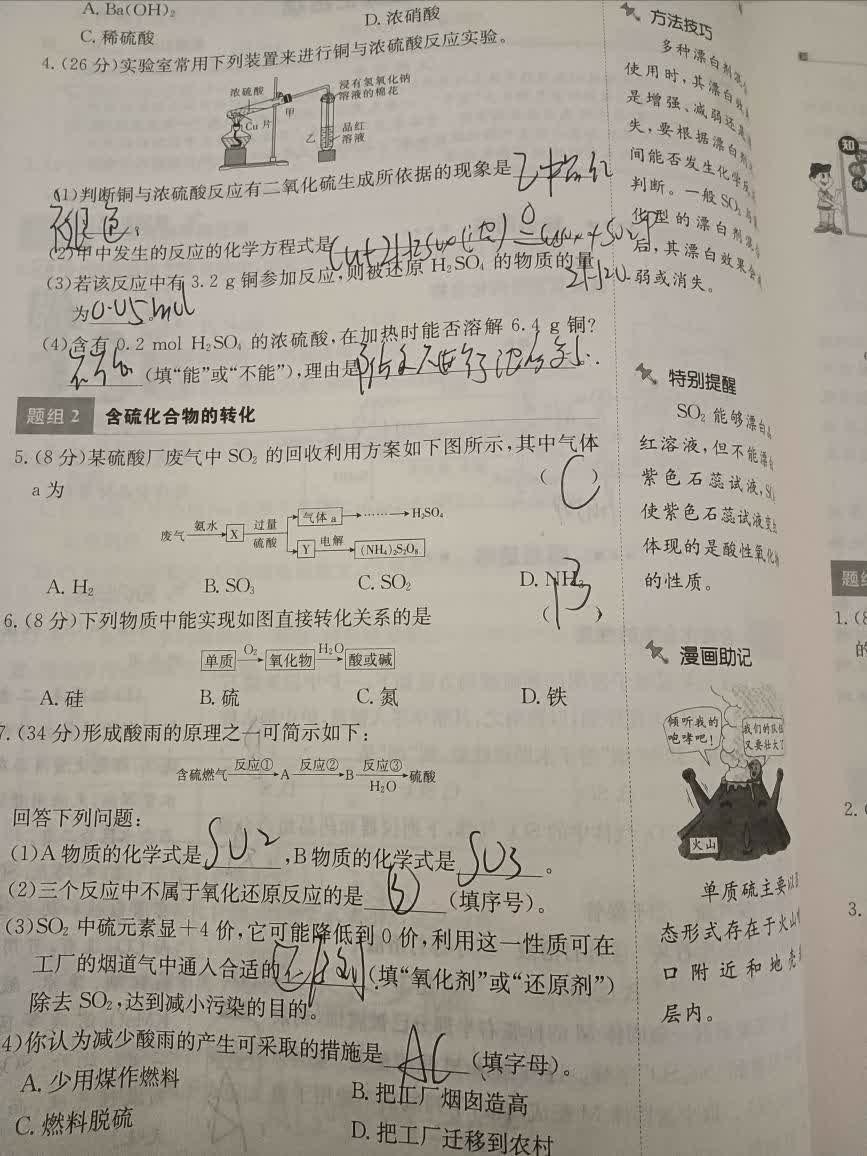 A. Ba(OH)₂
D. 浓硝酸
C. 稀硫酸
4. (26 分)实验室常用下列装置来进行铜与浓硫酸反应实验。
浓硫酸
浸有氢氧化钠
溶液的棉花
甲
Cu 片
乙
品红
溶液
(1)判断铜与浓硫酸反应有二氧化硫生成所依据的现象是 乙中品红
褪色
(2)甲中发生的反应的化学方程式是
(3)若该反应中有 3.2 g 铜参加反应,则被还原 H₂SO₄ 的物质的量
为 0.05mol
(4)含有 0.2 mol H₂SO₄ 的浓硫酸,在加热时能否溶解 6.4 g 铜?
不能 (填“能”或“不能”),理由是
题组 2 含硫化合物的转化
5. (8 分)某硫酸厂废气中 SO₂ 的回收利用方案如下图所示,其中气体
a 为 ( C )
废气 氨水 X 过量 硫酸 气体 a …… H₂SO₄
Y 电解 (NH₄)₂S₂O₈
A. H₂ B. SO₃ C. SO₂ D. NH₃
6. (8 分)下列物质中能实现如图直接转化关系的是 ( B )
单质 O₂ 氧化物 H₂O 酸或碱
A. 硅 B. 硫 C. 氮 D. 铁
7. (34 分)形成酸雨的原理之一可简示如下:
含硫燃气 反应① A 反应② B 反应③ H₂O 硫酸
回答下列问题:
(1)A 物质的化学式是 SO2 ,B 物质的化学式是 SO3 。
(2)三个反应中不属于氧化还原反应的是 ③ (填序号)。
(3)SO₂ 中硫元素显+4 价,它可能降低到 0 价,利用这一性质可在
工厂的烟道气中通入合适的 还原剂 (填“氧化剂”或“还原剂”)
除去 SO₂,达到减小污染的目的。
4)你认为减少酸雨的产生可采取的措施是 AC (填字母)。
A. 少用煤作燃料
B. 把工厂烟囱造高
C. 燃料脱硫
D. 把工厂迁移到农村
方法技巧
多种漂白剂
使用时,其漂白
是增强、减弱还
失,要根据漂白剂
间能否发生化学
判断。一般 SO₂
化型的漂白剂
后,其漂白效果会
弱或消失。
特别提醒
SO₂ 能够漂白
红溶液,但不能漂
紫色石蕊试液,
使紫色石蕊试液变
体现的是酸性氧化
的性质。
漫画助记
倾听我的
咆哮吧!
我们的队伍
又要壮大了
火山
单质硫主要以
态形式存在于火山
口附近和地壳
层内。
知
题组
1. (8
的
2.
3.